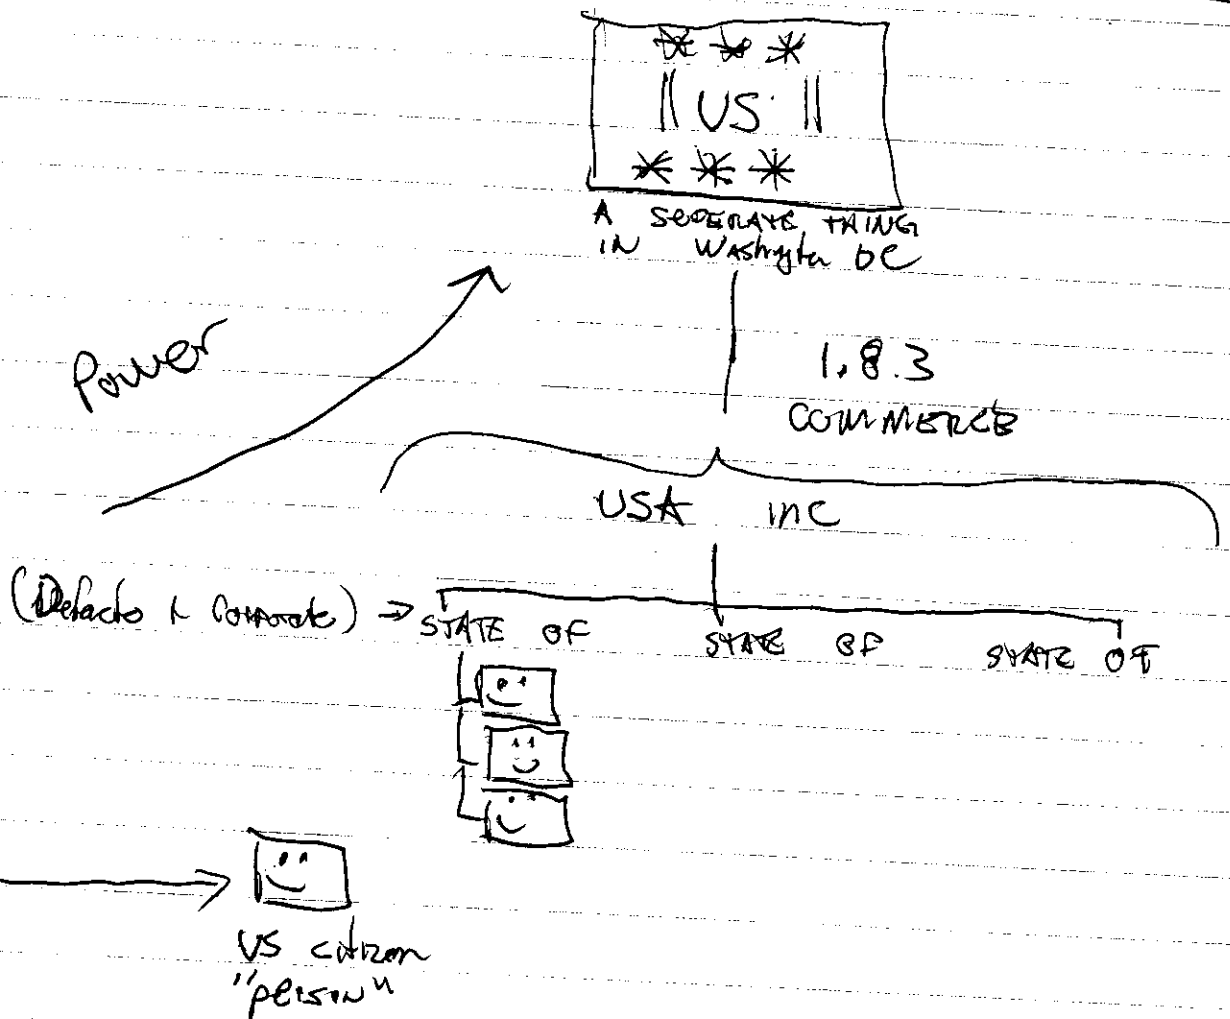 US
A SEPERATE THING
IN Washington DC
Power
1.8.3
COMMERCE
USA INC
(Defacto + Corporate) → STATE OF STATE OF STATE OF
US citizen
"person"